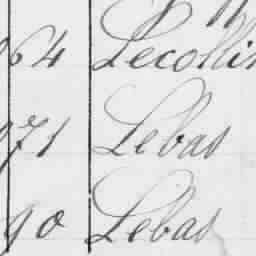 64 Lecollin
71 Lebas
90 Lebas